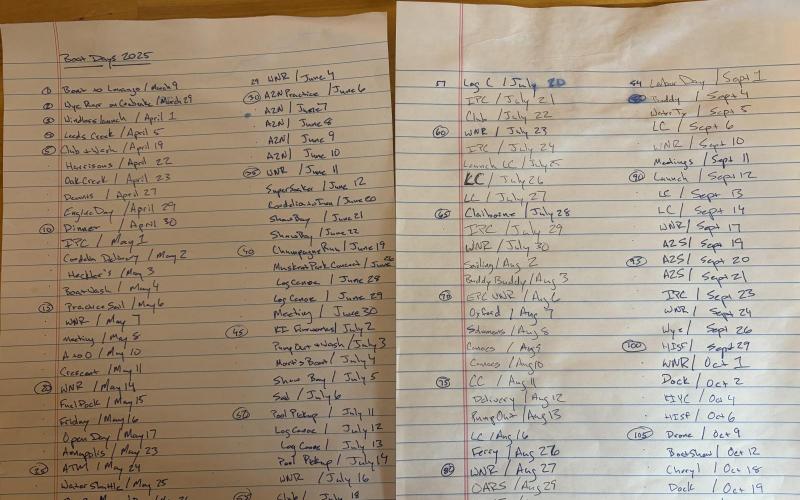 Boat Days 2025
① Boat to Lonaso / March 9
② Wye River on Graduate / March 29
③ Windless launch / April 1
④ Leeds Creek / April 5
⑤ Club + Wash / April 19
Harrisons / April 22
Oak Creek / April 23
Dennis / April 27
Engine Day / April 29
⑩ Dinner / April 30
IPC / May 1
Cordelia Delivery / May 2
Heckler's / May 3
Boat Wash / May 4
⑮ Practice Sail / May 6
WNR / May 7
Meeting / May 8
A to O / May 10
Crescent / May 11
⑳ WNR / May 14
Fuel Dock / May 15
Friday / May 16
Open Day / May 17
Annapolis / May 23
㉕ ATM / May 24
Water Shuttle / May 25
29 WNR / June 4
㉚ A2N Practice / June 6
A2N / June 7
A2N / June 8
A2N / June 9
A2N / June 10
㉟ WNR / June 11
Superseaker / June 12
Cordelia to Town / June 20
Shaw Bay / June 21
Shaw Bay / June 22
㊵ Champagne Run / June 19
Muskrat Park Concert / June 26
Log Canoe / June 28
Log Canoe / June 29
Meeting / June 30
㊺ KI Fireworks / July 2
Pump Out + Wash / July 3
Mort's Boat / July 4
Shaw Bay / July 5
Sail / July 6
㊿ Pool Pickup / July 11
Log Canoe / July 12
Log Canoe / July 13
Pool Pickup / July 14
WNR / July 16
Club / July 18
57 Log C / July 20
IPC / July 21
Club / July 22
60 WNR / July 23
IPC / July 24
Launch LC / July 25
LC / July 26
LC / July 27
65 Claiborne / July 28
IPC / July 29
WNR / July 30
Sailing / Aug 2
Buddy Buddy / Aug 3
70 EPC WNR / Aug 6
Oxford / Aug 7
/ Aug 8
Canoes / Aug 9
Canoes / Aug 10
75 CC / Aug 11
Delivery / Aug 12
Pump Out / Aug 13
LC / Aug 16
Ferry / Aug 26
80 WNR / Aug 27
OARS / Aug 29
84 Labor Day / Sept 1
Buddy / Sept 4
Water Tx / Sept 5
LC / Sept 6
WNR / Sept 10
Meetings / Sept 11
90 Launch / Sept 12
LC / Sept 13
LC / Sept 14
WNR / Sept 17
A2S / Sept 19
95 A2S / Sept 20
A2S / Sept 21
IPC / Sept 23
WNR / Sept 24
Wye / Sept 26
100 HISF / Sept 29
WNR / Oct 1
Dock / Oct 2
HYC / Oct 4
HISF / Oct 6
105 Drone / Oct 9
Boat Show / Oct 12
Cheryl / Oct 18
Dock / Oct 19